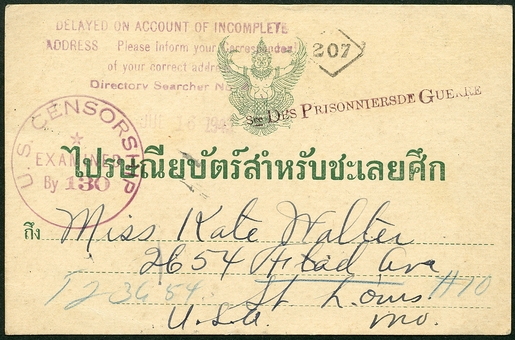 DELAYED ON ACCOUNT OF INCOMPLETE
ADDRESS Please Inform your Correspondent
of your correct address
Directory Searcher No.
207
Sce DES PRISONNIERS DE GUERRE
U.S. CENSORSHIP
EXAMINED
By 130
ไปรษณียบัตร์สำหรับชะเลยศึก
ถึง Miss Kate Walter
2654 Ave
St Louis #10
U.S.A. Mo.